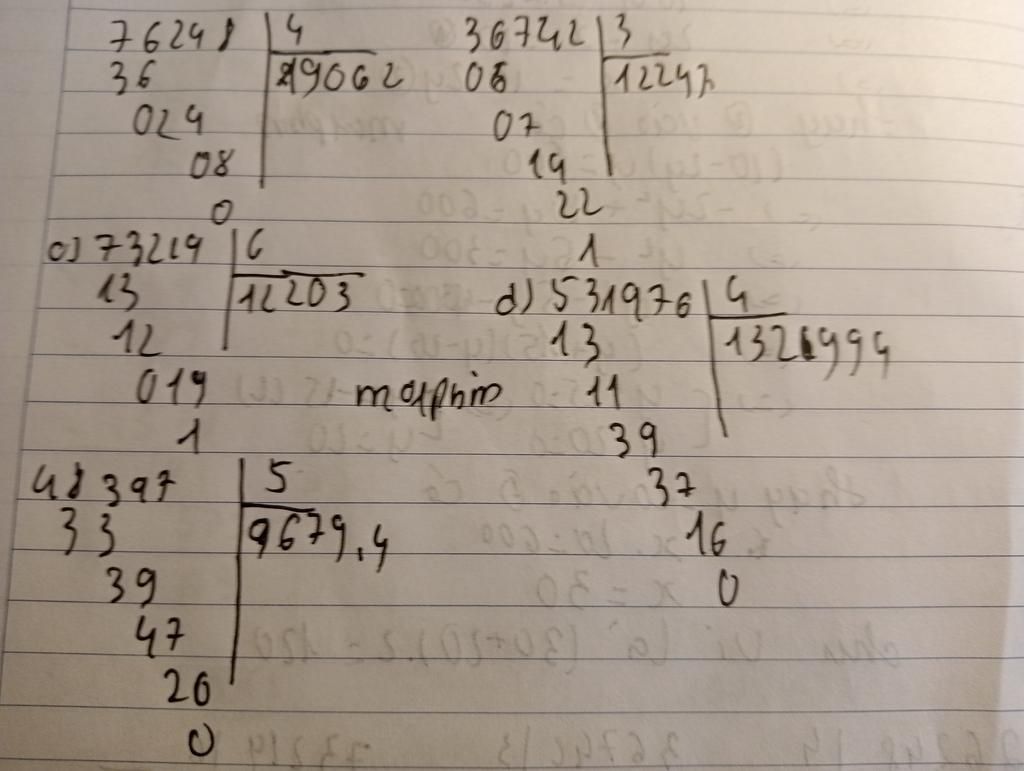 76248 | 4
36 19062
024
08
0
36742 | 3
06 12247
07
14
22
1
c) 73219 | 6
13 12203
12
019
1
d) 531976 | 4
13 132994
11
39
37
16
0
morphin
48397 | 5
33 9679,4
39
47
20
0